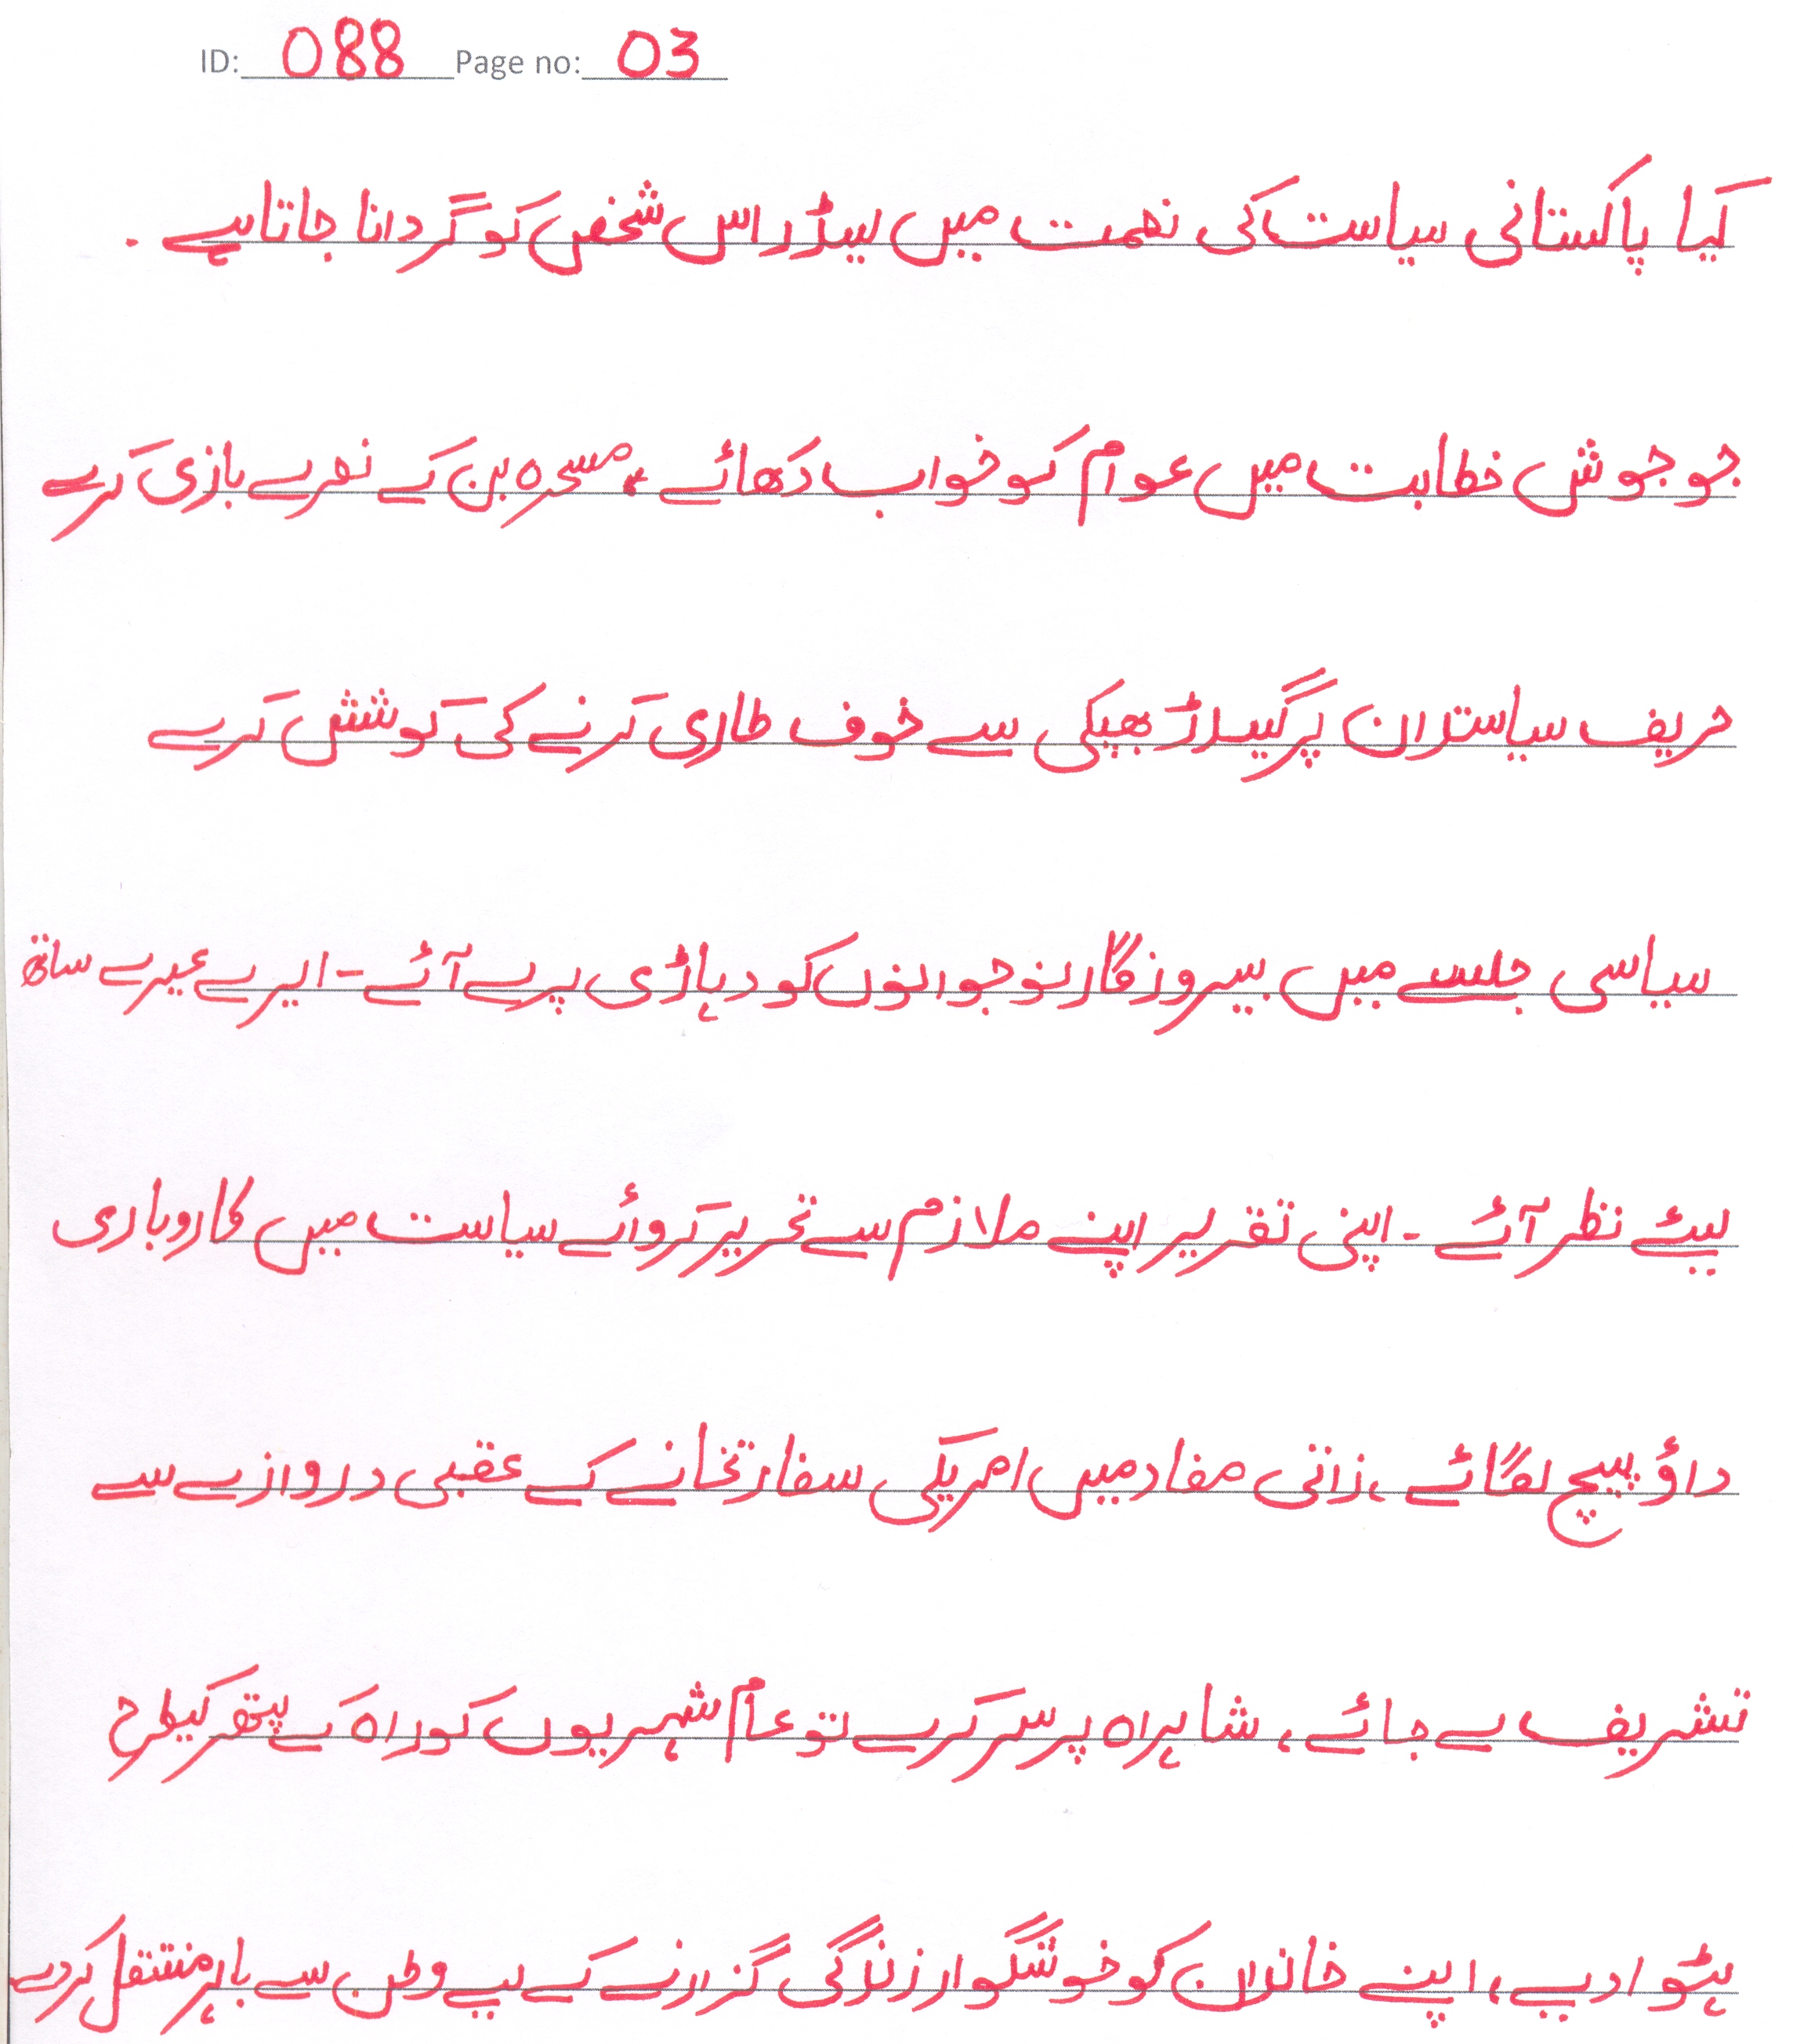 ID: 088 Page no: 03
کیا پاکستانی سیاست کی نعمت میں لیڈر اس شخص کو گردانا جاتا ہے۔
جو جوش خطابت میں عوام کو خواب دکھائے، مسخرہ بن کے نعرے بازی کرے
حریف سیاستدان پر گیدڑ بھبکی سے خوف طاری کرنے کی کوشش کرے
سیاسی جلسے میں بیروزگار نوجوانوں کو دہاڑی پر لے آئے - ایرے غیرے ساتھ
لیئے نظر آئے - اپنی تقریر اپنے ملازم سے تحریر کروائے سیاست میں کاروباری
داؤ پیچ لگائے ،زاتی مفاد میں امریکی سفارتخانے کے عقبی دروازے سے
تشریف لے جائے، شاہراہ پر سفر کرے تو عام شہریوں کو راہ کے پتھر کیطرح
ہٹوا دے، اپنے خاندان کو خوشگوار زندگی گزارنے کے لیے وطن سے باہر منتقل کر دے